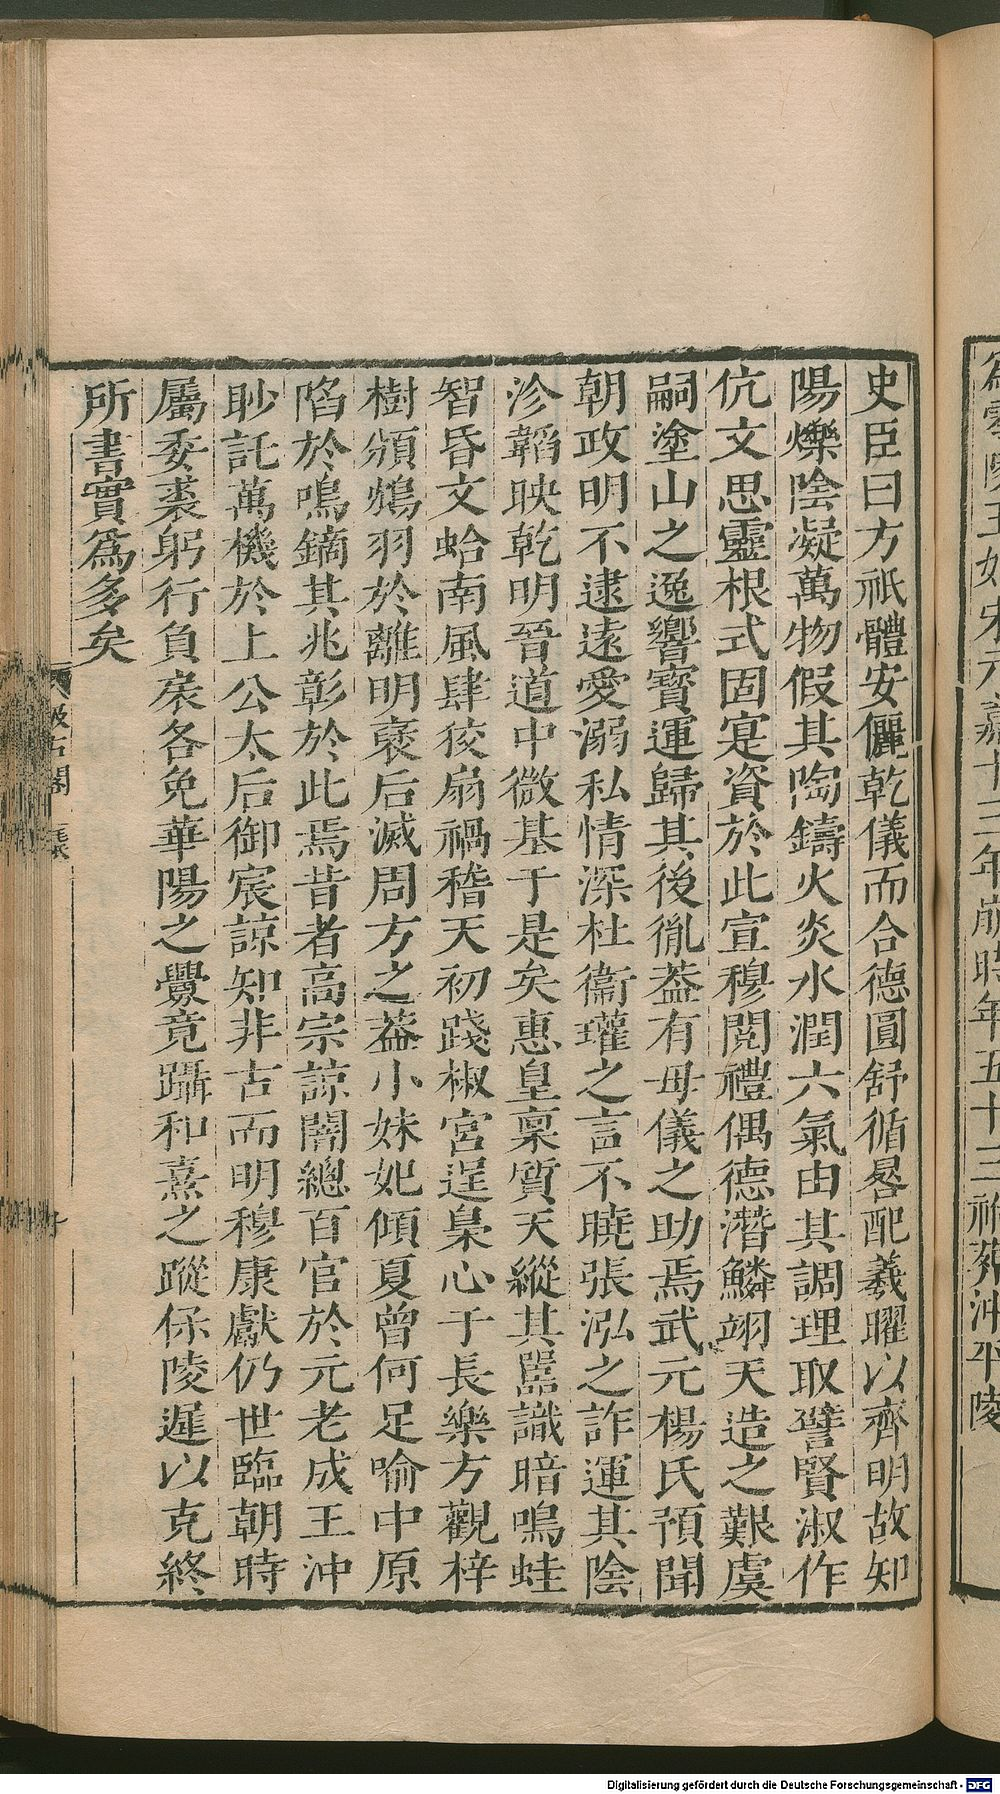 爲零陵王妃宋元嘉十三年崩時年五十三祔葬沖平陵
史臣曰方祇體安儷乾儀而合德圓舒循晷配羲曜以齊明故知
陽爍陰凝萬物假其陶鑄火炎水潤六氣由其調理取譬賢淑作
伉文思靈根式固寔資於此宣穆閱禮偶德潛鱗翊天造之艱虞
嗣塗山之逸響寶運歸其後胤葢有母儀之助焉武元楊氏預聞
朝政明不逮遠愛溺私情深杜衞瓘之言不曉張泓之詐運其陰
沴韜映乾明晉道中微基于是矣惠皇稟質天縱其嚚識暗鳴蛙
智昏文蛤南風肆狡扇禍稽天初踐椒宮逞梟心于長樂方觀梓
樹頒鴆羽於離明褒后滅周方之葢小妹妃傾夏曾何足喻中原
陷於鳴鏑其兆彰於此焉昔者高宗諒闇總百官於元老成王沖
眇託萬機於上公太后御宸諒知非古而明穆康獻仍世臨朝時
屬委裘躬行負扆各免華陽之釁竟躡和熹之蹤保陵遲以克終
所書實爲多矣
汲古閣
Digitalisierung gefördert durch die Deutsche Forschungsgemeinschaft - DFG